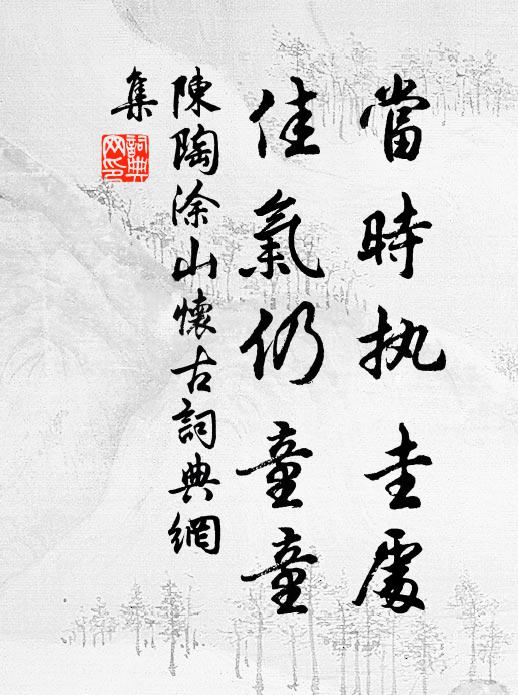 當時执圭處
佳氣仍童童
陳陶涂山懷古詞典網
集
詞典
网印